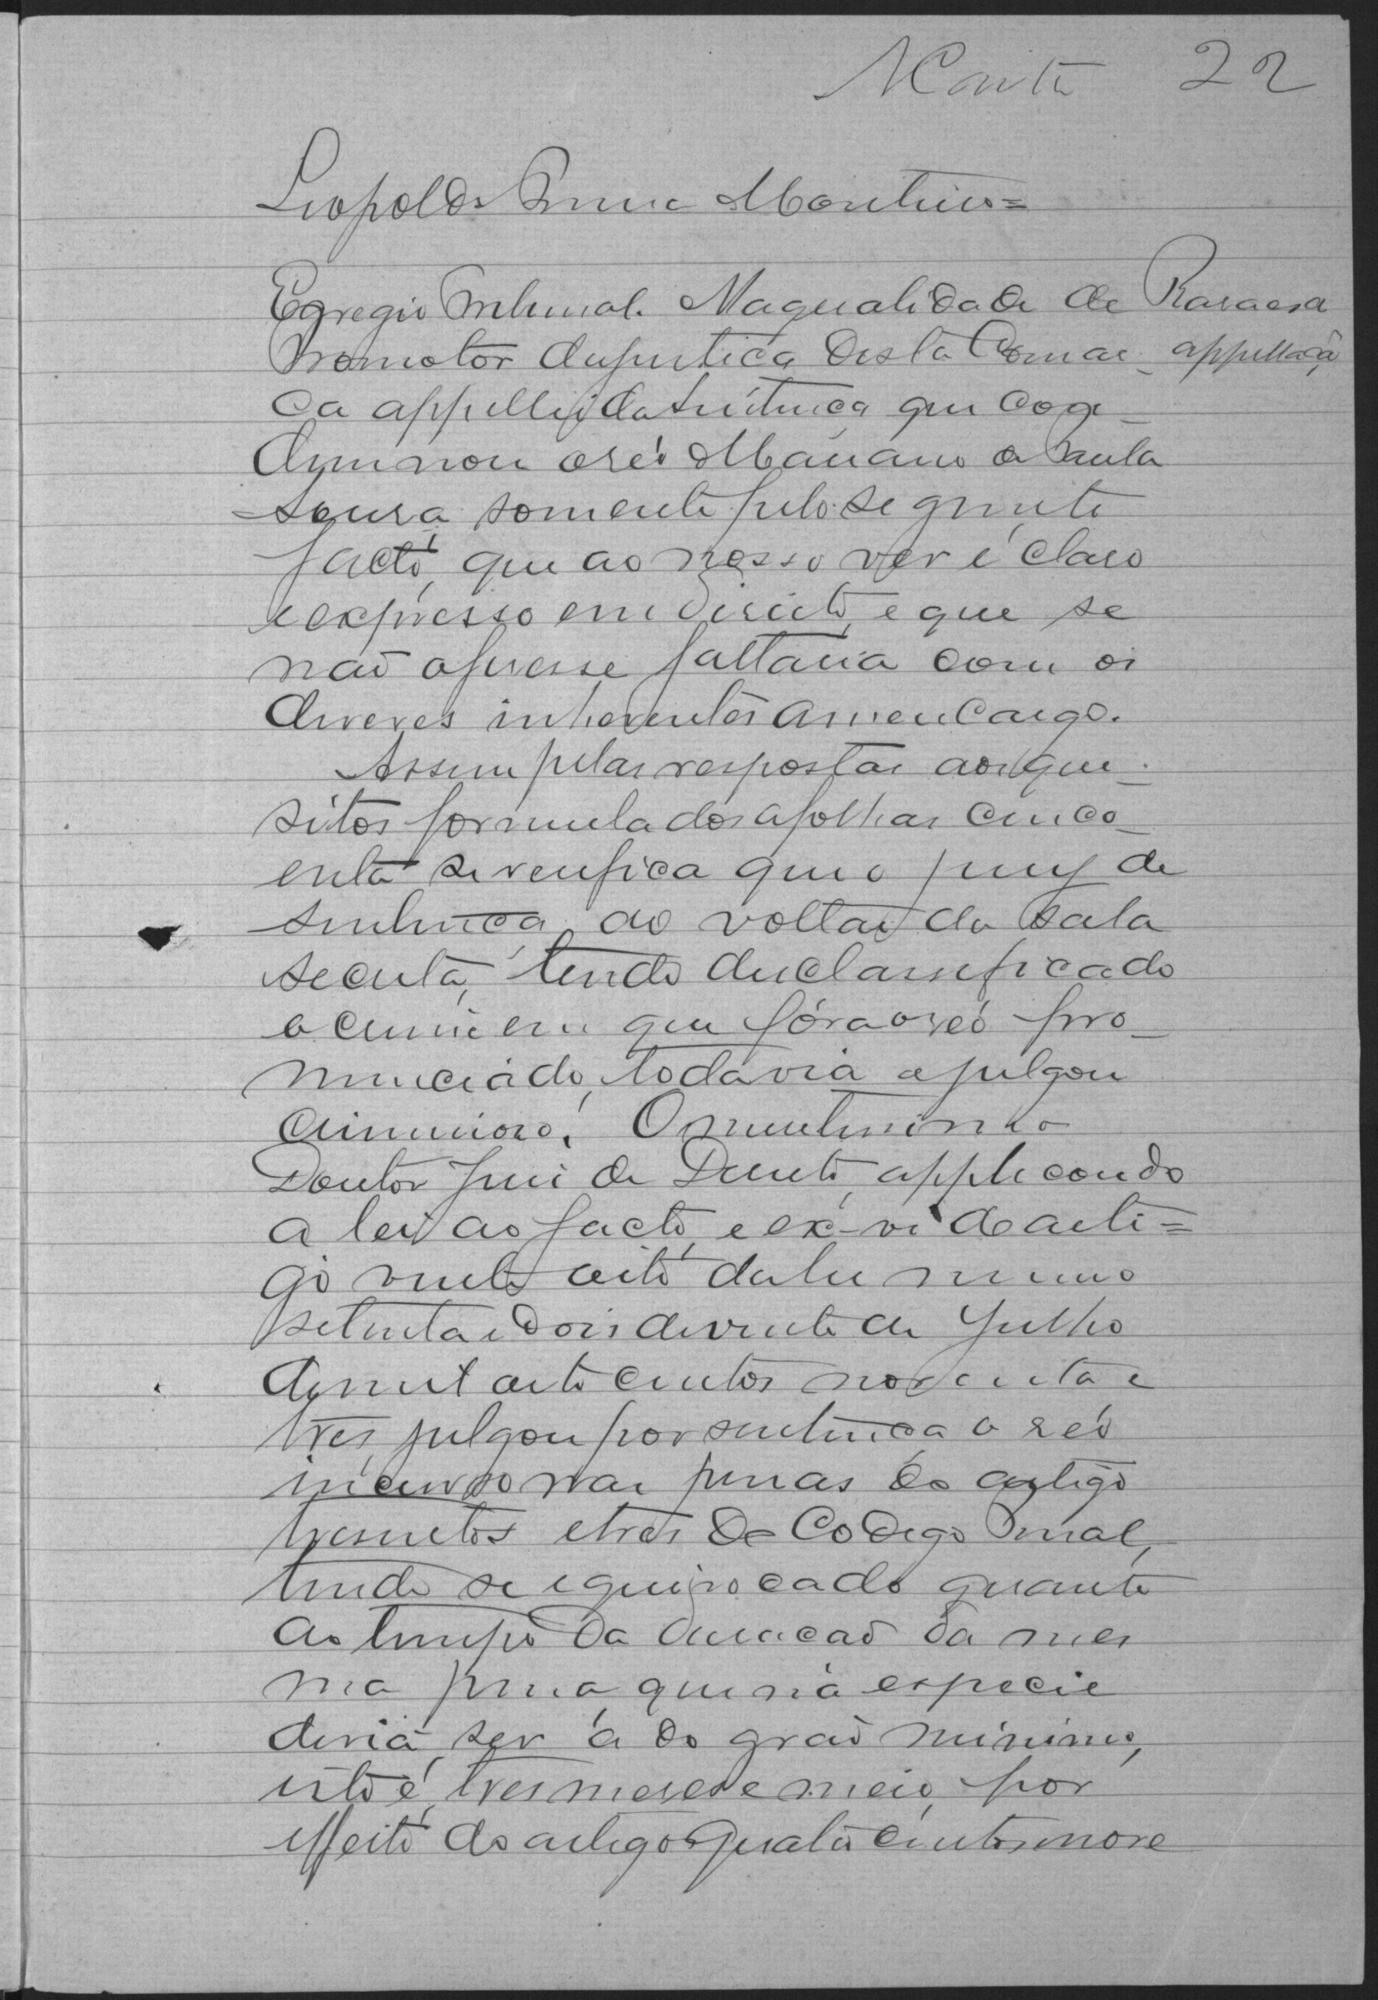 22
Leopoldo Monteiro=
Egregio Tribunal. Na qualidade de
Promotor da justiça desta Comar-
appellação
ca appellei da sentença que con-
demnou o réo Mariano de Paula
Souza somente pelo seguinte
facto, que ao nosso ver é claro
e expresso em direito, e que se
não o fizesse faltaria com os
deveres inherentes a meu cargo.
Assim pelas respostas aos que-
sitos formulados a folhas cinco-
enta se verifica que o jury de
sentença, ao voltar da sala
secreta, tendo desclassificado
o crime em que fôra o réo pro-
nunciado, todavia o julgou
criminoso. O meritissimo
Doutor Juiz de Direito, applicando
a lei ao facto, e ex-vi do arti=
go vinte oito da lei numero
setenta e dois de vinte de Julho
de mil oito centos noventa e
tres, julgou por sentença o réo
incurso nas penas do artigo
tresentos e tres do Codigo Penal,
tendo se equivocado quanto
ao tempo da duracão da mes
ma pena, que na especie
devia ser a do gráo minimo,
isto é, tres meses e meio, por
effeito do artigo quatro centos nove